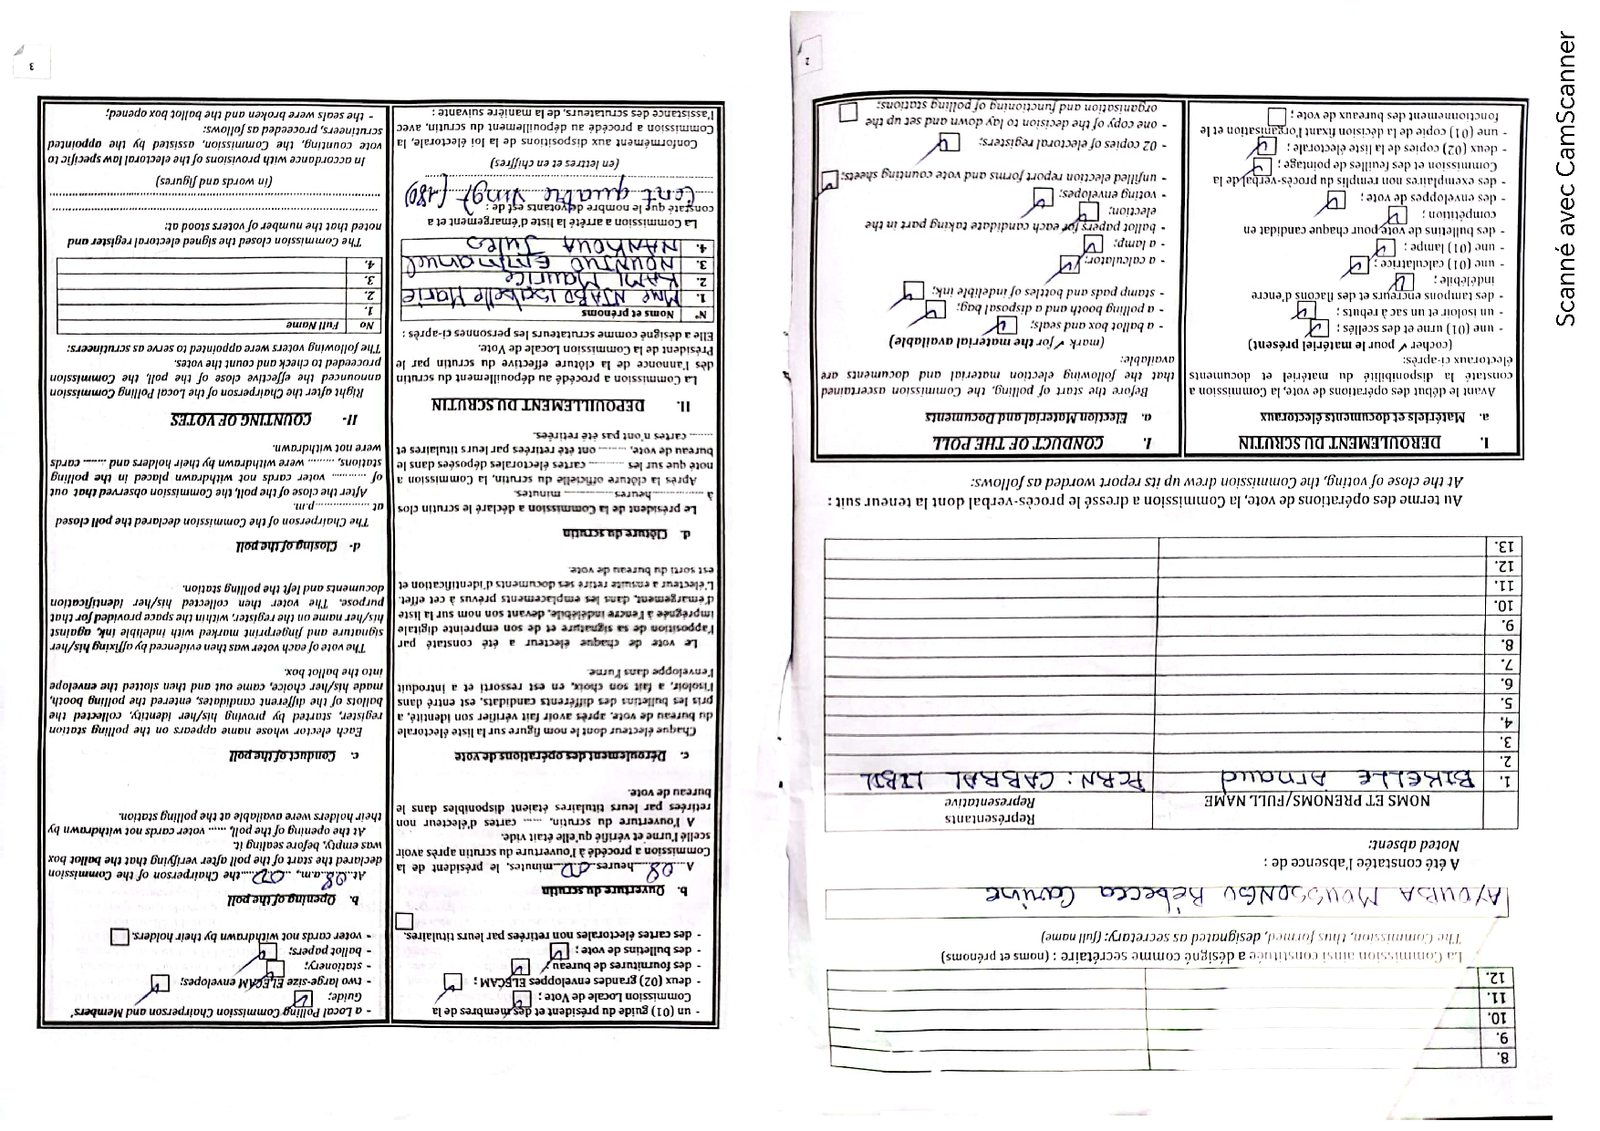 8.
9.
10.
11.
12.
La Commission ainsi constituée a désigné comme secrétaire : (noms et prénoms)
The Commission, thus formed, designated as secretary: (full name)
AYOUBA MOUSSONGO Rébecca Carine
A été constatée l'absence de :
Noted absent:
NOMS ET PRÉNOMS/FULL NAME
Représentants
Representative
1. BIKELLE Arnaud PCRN: CABRAL LIBII
2.
3.
4.
5.
6.
7.
8.
9.
10.
11.
12.
13.
Au terme des opérations de vote, la Commission a dressé le procès-verbal dont la teneur suit :
At the close of voting, the Commission drew up its report worded as follows:
I. DEROULEMENT DU SCRUTIN
a. Matériels et documents électoraux
Avant le début des opérations de vote, la Commission a
constaté la disponibilité du matériel et documents
électoraux ci-après:
(cocher ✓ pour le matériel présent)
- une (01) urne et des scellés ;
- un isoloir et un sac à rebuts ;
- des tampons encreurs et des flacons d'encre
indélébile ;
- une (01) calculatrice ;
- une (01) lampe ;
- des bulletins de vote pour chaque candidat en
compétition ;
- des enveloppes de vote ;
- des exemplaires non remplis du procès-verbal de la
Commission et des feuilles de pointage ;
- deux (02) copies de la liste électorale ;
- une (01) copie de la décision fixant l'organisation et le
fonctionnement des bureaux de vote ;
I. CONDUCT OF THE POLL
a. Election Material and Documents
Before the start of polling, the Commission ascertained
that the following election material and documents are
available:
(mark ✓ for the material available)
- a ballot box and seals;
- a polling booth and a disposal bag;
- stamp pads and bottles of indelible ink;
- a calculator;
- a lamp;
- ballot papers for each candidate taking part in the
election;
- voting envelopes;
- unfilled election report forms and vote counting sheets;
- 02 copies of electoral registers;
- one copy of the decision to lay down and set up the
organisation and functioning of polling stations;
2
- un (01) guide du président et des membres de la
Commission Locale de Vote ;
- deux (02) grandes enveloppes ELECAM ;
- des fournitures de bureau ;
- des bulletins de vote ;
- des cartes électorales non retirées par leurs titulaires.
b. Ouverture du scrutin
A 08 heures 00 minutes, le président de la
Commission a procédé à l'ouverture du scrutin après avoir
scellé l'urne et vérifié qu'elle était vide.
A l'ouverture du scrutin, ...... cartes d'électeur non
retirées par leurs titulaires étaient disponibles dans le
bureau de vote.
c. Déroulement des opérations de vote
Chaque électeur dont le nom figure sur la liste électorale
du bureau de vote, après avoir fait vérifier son identité, a
pris les bulletins des différents candidats, est entré dans
l'isoloir, a fait son choix, en est ressorti et a introduit
l'enveloppe dans l'urne.
Le vote de chaque électeur a été constaté par
l'apposition de sa signature et de son empreinte digitale
imprégnée à l'encre indélébile, devant son nom sur la liste
d'émargement, dans les emplacements prévus à cet effet.
L'électeur a ensuite retiré ses documents d'identification et
est sorti du bureau de vote.
d. Clôture du scrutin
Le président de la Commission a déclaré le scrutin clos
à ............heures............ minutes.
Après la clôture officielle du scrutin, la Commission a
noté que sur les ......... cartes électorales déposées dans le
bureau de vote, ........ ont été retirées par leurs titulaires et
...... cartes n'ont pas été retirées.
II. DEPOUILLEMENT DU SCRUTIN
La Commission a procédé au dépouillement du scrutin
dès l'annonce de la clôture effective du scrutin par le
Président de la Commission Locale de Vote.
Elle a désigné comme scrutateurs les personnes ci-après :
N° Noms et prénoms
1. Mme NJABD Isabelle Marie
2. KAMI Maurice
3. NOUNTUO Emmanuel
4. NANKOUA Jules
La Commission a arrêté la liste d'émargement et a
constaté que le nombre de votants est de :
Cent quatre vingt (180)
(en lettres et en chiffres)
Conformément aux dispositions de la loi électorale, la
Commission a procédé au dépouillement du scrutin, avec
l'assistance des scrutateurs, de la manière suivante :
- a Local Polling Commission Chairperson and Members'
Guide;
- two large-size ELECAM envelopes;
- stationery;
- ballot papers;
- voter cards not withdrawn by their holders.
b. Opening of the poll
At 08 a.m, 00 the Chairperson of the Commission
declared the start of the poll after verifying that the ballot box
was empty, before sealing it.
At the opening of the poll, ...... voter cards not withdrawn by
their holders were available at the polling station.
c. Conduct of the poll
Each elector whose name appears on the polling station
register, started by proving his/her identity, collected the
ballots of the different candidates, entered the polling booth,
made his/her choice, came out and then slotted the envelope
into the ballot box.
The vote of each voter was then evidenced by affixing his/her
signature and fingerprint marked with indelible ink, against
his/her name on the register, within the space provided for that
purpose. The voter then collected his/her identification
documents and left the polling station.
d- Closing of the poll
The Chairperson of the Commission declared the poll closed
at ..................p.m.
After the close of the poll, the Commission observed that out
of .......... voter cards not withdrawn placed in the polling
stations, ......... were withdrawn by their holders and ...... cards
were not withdrawn.
II- COUNTING OF VOTES
Right after the Chairperson of the Local Polling Commission
announced the effective close of the poll, the Commission
proceeded to check and count the votes.
The following voters were appointed to serve as scrutineers:
No Full Name
1.
2.
3.
4.
The Commission closed the signed electoral register and
noted that the number of voters stood at:
(in words and figures)
In accordance with provisions of the electoral law specific to
vote counting, the Commission, assisted by the appointed
scrutineers, proceeded as follows:
- the seals were broken and the ballot box opened;
3
Scanné avec CamScanner